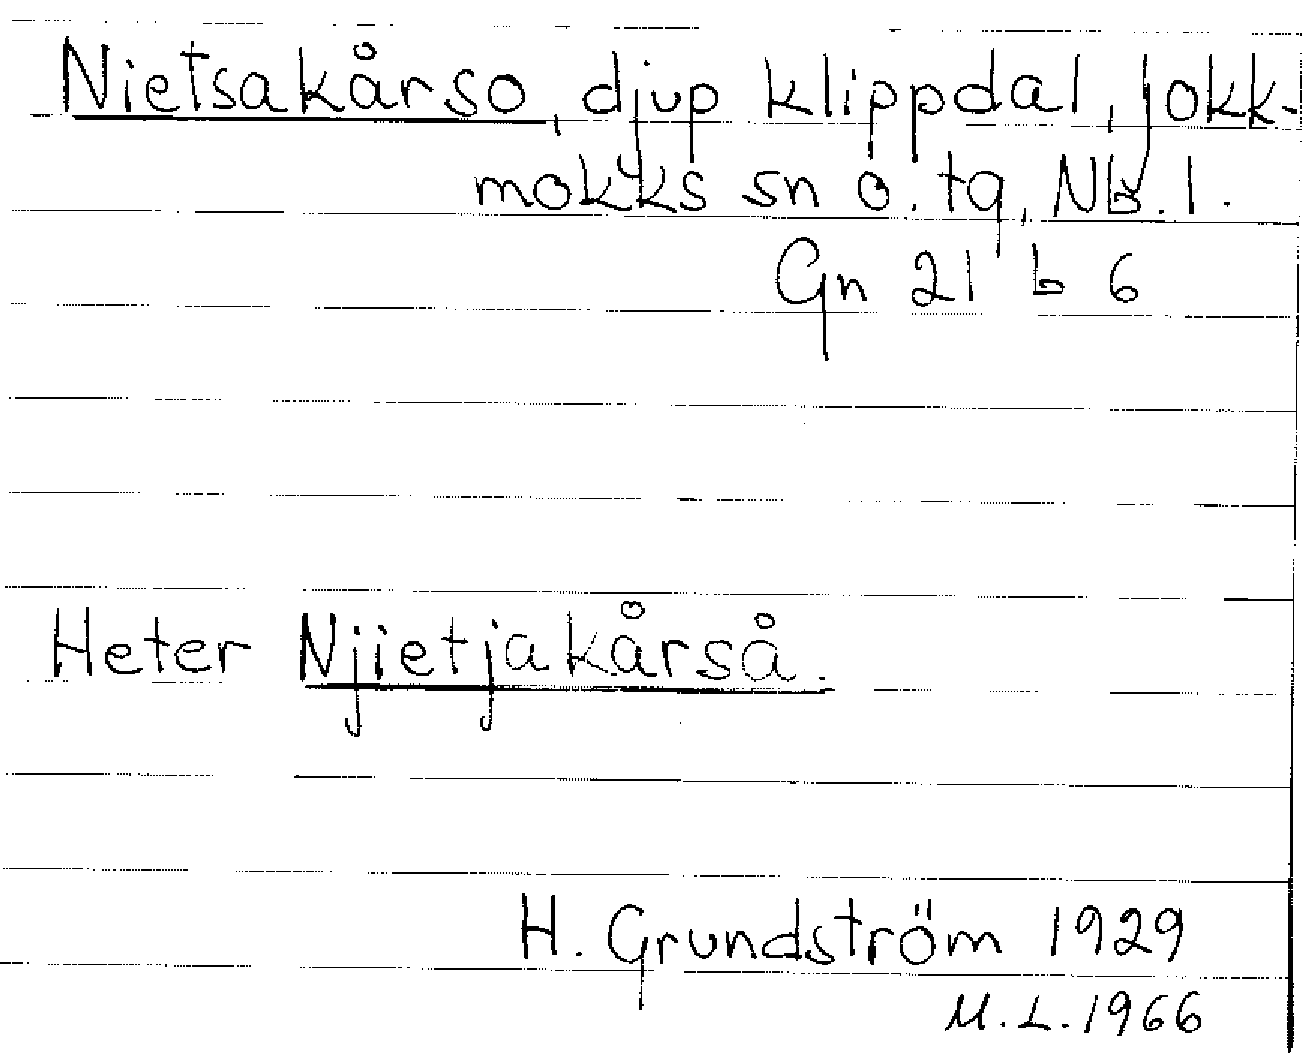 Nietsakårso, djup klippdal, Jokk-
mokks sn o. tg, Nb. l.
Gn 21 b 6
Heter Njietjakårså.
H. Grundström 1929
M.L. 1966